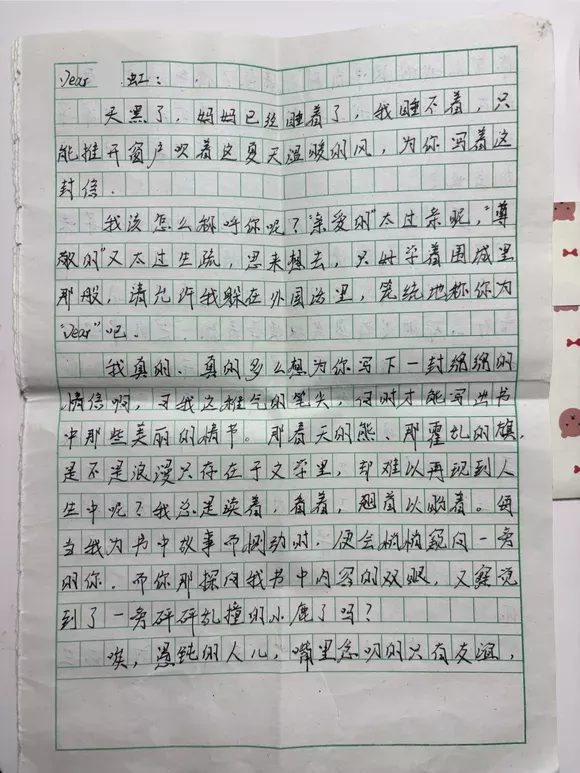 Dear 虹：
天黑了，妈妈已经睡着了，我睡不着，只
能推开窗户吹着这夏天温暖的风，为你写着这
封信.
我该怎么称呼你呢？“亲爱的”太过亲昵，“尊
敬的”又太过生疏，思来想去，只好学着围城里
那般，请允许我躲在外国话里，笼统地称你为
“Dear”吧.
我真的、真的多么想为你写下一封绵绵的
情信啊，可我这稚气的笔尖，何时才能写出书
中那些美丽的情节。那春天的熊、那霍乱的旗，
是不是浪漫只存在于文学里，却难以再现到人
生中呢？我总是读着，看着，翘首以盼着。每
当我为书中故事而恻动时，便会悄悄窥向一旁
的你.而你那探向我书中内容的双眼，又窥说
到了一旁砰砰乱撞的小鹿了吗？
唉，愚钝的人儿，嘴里念叨的只有友谊，